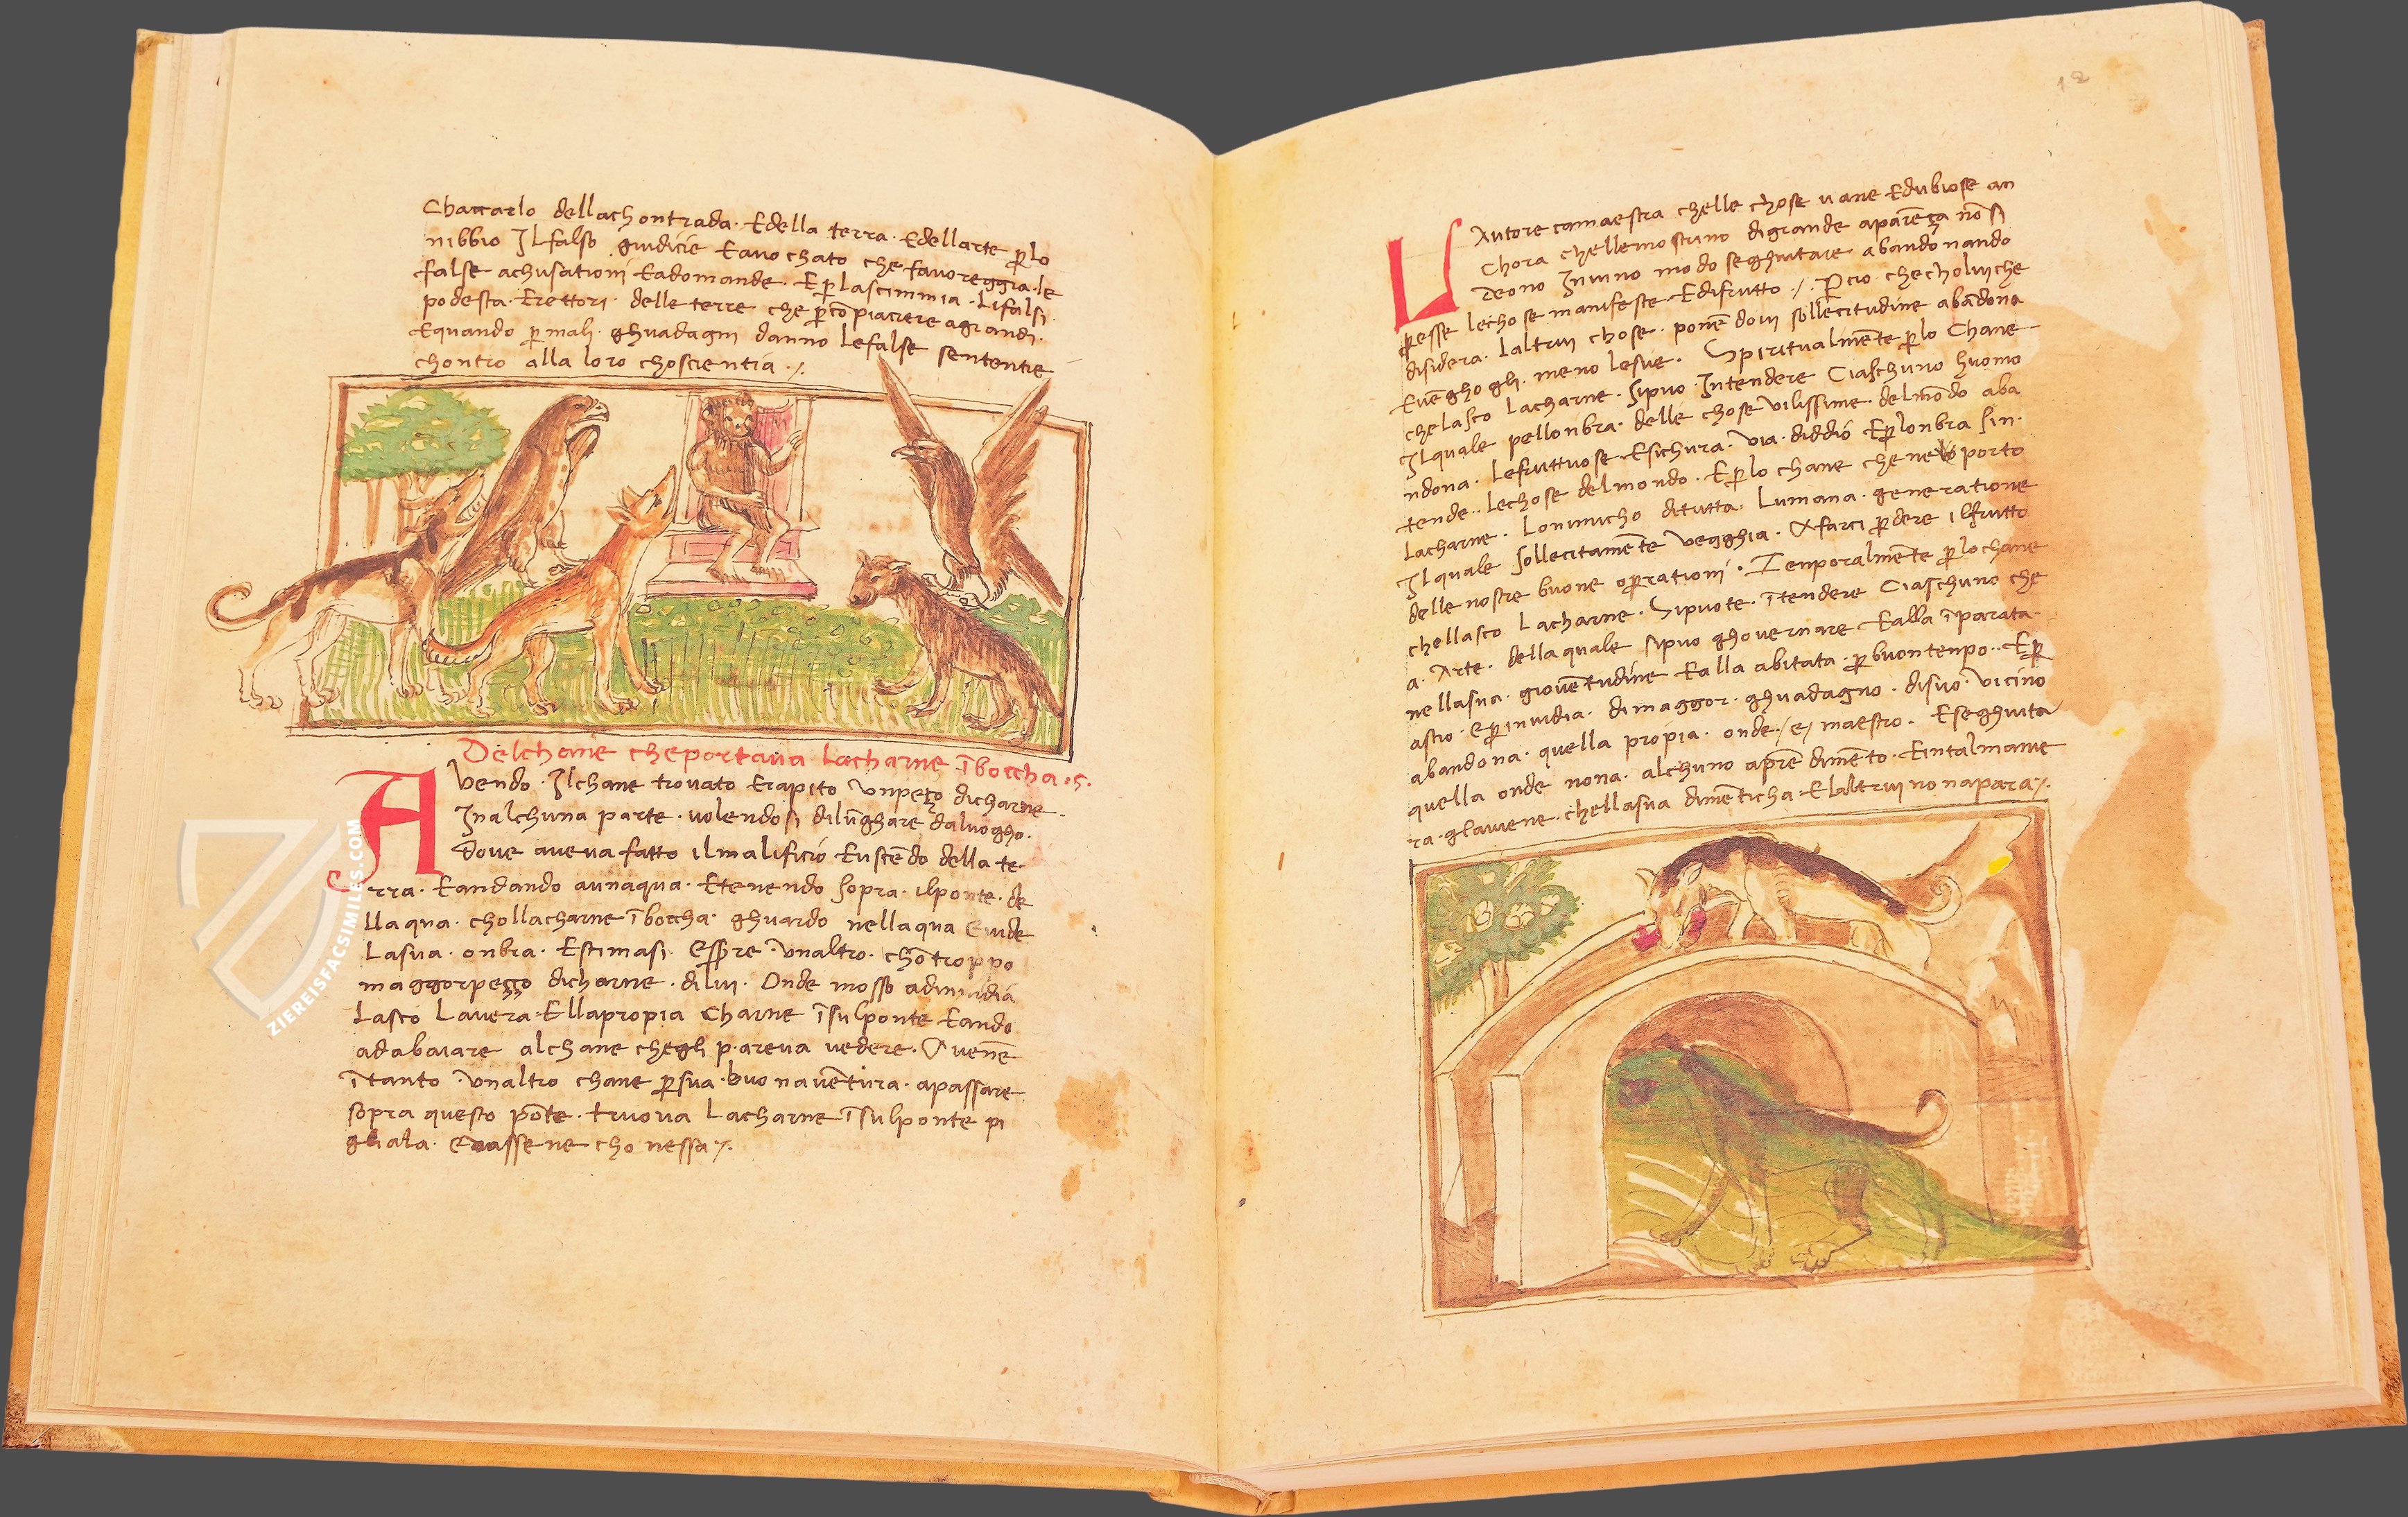 Chaccarlo dellachontrada · Edella terra · Edellarte ꝑlo
nibbio ILfalso giudicie Eavochato che favoreggia · le
false achusationi Eadomande · Eꝑ Lascimmia · Lifalsi ·
podesta · Erettori · delle terre che ꝑcōpiacere agrandi ·
Equando ꝑ mali · ghuadagni danno Lefalse sententie
chontro alla loro choscientia ·/.
Delchane cheportava Lacharne īboccha · 5 ·
Avendo · Ilchane trovato Erapito unpeço dicharne ·
Inalchuna parte · volendosi dilūghare daluogho ·
Dove avevafatto ilmalificio Euscēdo della te
rra · Eandando aunaqua · Etenendo sopra · ilponte · de
llaqua · chollacharne ībocha · ghuardo nellaqua Evide
Lasua · onbra · Estimasi · Eſſere · unaltro · chōtroppo
maggorpeçço dicharne · dilui · Onde mosso adinvidia
Lascio Lavera · Ellapropia Charne īsulponte Eando
adabaiare alchane chegli pareva vedere · Avenē
ītanto · unaltro chane ꝑsua · buonavētura · apassare
sopra questo pōte · truova Lacharne īsulponte pi
gliala · Evassene chonessa ·/.
12
LAutore camaestra chelle chose vane Edubiose an
chora chellemostrino digrande aparēça nōsi
deono Inuno modo seghuitare abandonando
ꝑesse lechose manifeste · Edifrutto ·/. Pcio · checholuiche
disidera · Laltrui chose · ponēdovi sollecitudine abādona
Evēghogli · meno lesue · Spiritualmēte ꝑlo Chane
chelascio Lacharne · sipuo · Intendere Ciaschuno huomo
Ilquale pellonbra · delle chose vilissime · delmōdo aba
ndona · Lefruttuose · Esichura · via · diddio Eꝑlonbra sin ·
tende · · Lechose delmondo · Eꝑlo chane chenelo porto
Lacharne · Lonimicho ditutta · Lumana · generatione
Ilquale sollecitamēte vegghia · Afarci ꝑdere ilfrutto
delle nostre buone oꝑrationi · Tenporalmēte ꝑlochane
chellascio Lacharne · Sipuote · ītendere Ciaschuno che
a · Arte · dellaquale sipuo ghovernare Ealla īparata ·
nellasua · gioventudine Ealla abitata · ꝑbuontenpo · · Eꝑ
astio · Eꝑinvidia · dimaggor · ghuadagno · disuo · vicino
abandona · quella propia · onde / e / maestro · Eseghuita
quella onde nona · alchuno aprēdimēto · Eintalmanie
ra · glaviene · chellasua dimēticha · Elaltrui nonapara ·/.
ZIEREISFACSIMILES.COM